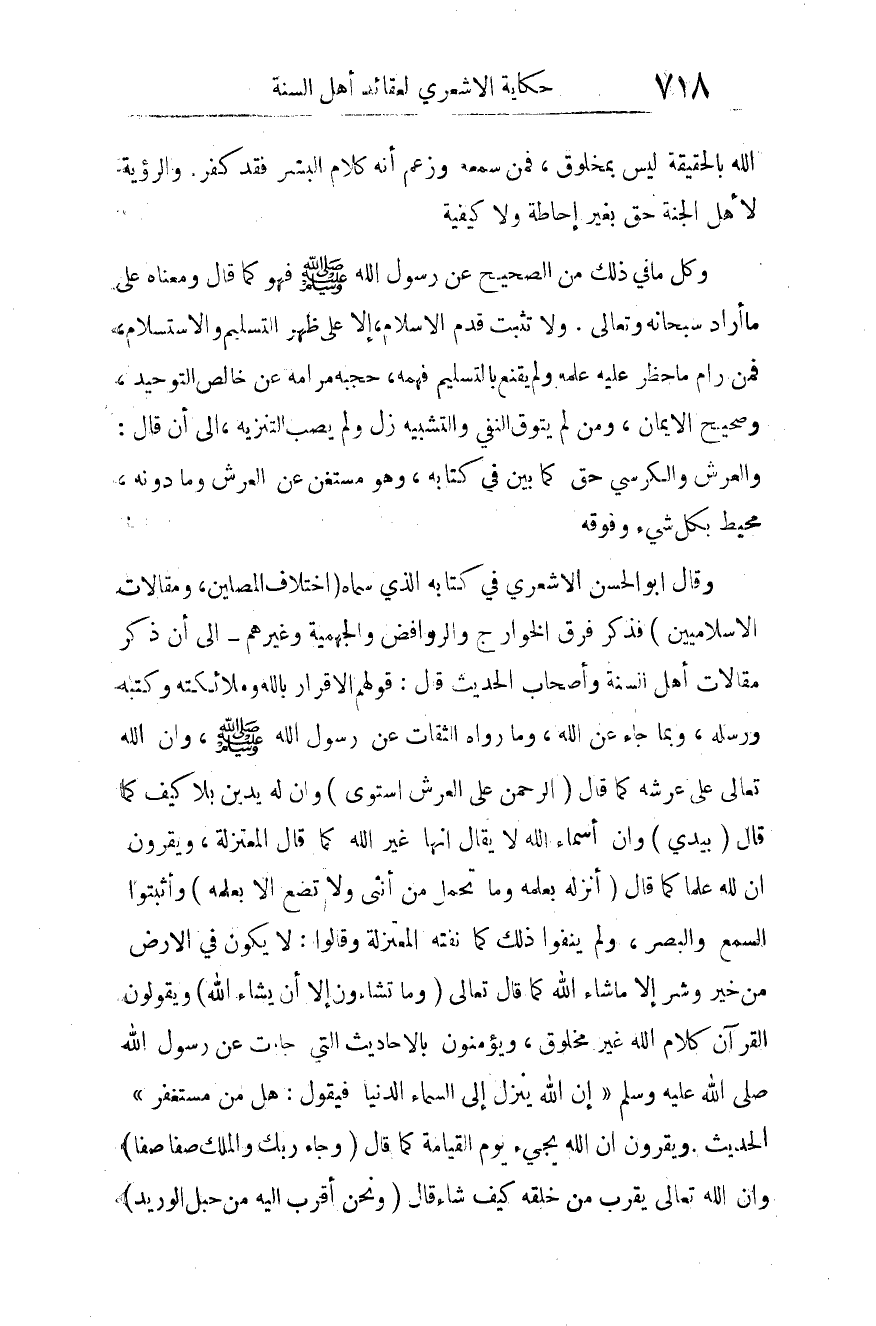 ٧١٨ حكاية الاشعري لعقائد أهل السنة
الله بالحقيقة ليس بمخلوق ، فمن سمعه وزعم أنه كلام البشر فقد كفر . والرؤية
لأهل الجنة حق بغير إحاطة ولا كيفية
وكل مافي ذلك من الصحيح عن رسول الله ﷺ فهو كما قال ومعناه على
ماأراد سبحانه وتعالى . ولا تثبت قدم الاسلام ، إلا على ظهر التسليم والاستسلام ،
فمن رام ماحظر عليه علمه ولم يقنع بالتسليم فهمه ، حجبه مرامه عن خالص التوحيد ،
وصحيح الايمان ، ومن لم يتوق النفي والتشبيه زل ولم يصب التنزيه ، الى أن قال :
والعرش والكرسي حق كما بين في كتابه ، وهو مستغن عن العرش وما دونه ،
محيط بكل شيء وفوقه
وقال ابو الحسن الاشعري في كتابه الذي سماه (اختلاف المصلين ، ومقالات
الاسلاميين ) فذكر فرق الخوارج والروافض والجهمية وغيرهم – الى أن ذكر
مقالات أهل السنة وأصحاب الحديث قال : قولهم الاقرار بالله وملائكته وكتبه
ورسله ، وبما جاء عن الله ، وما رواه الثقات عن رسول الله ﷺ ، وان الله
تعالى على عرشه كما قال ( الرحمن على العرش استوى ) وان له يدين بلا كيف كما
قال ( بيدي ) وان أسماء الله لا يقال انها غير الله كما قال المعتزلة ، ويقرون
ان لله علما كما قال ( أنزله بعلمه وما تحمل من أنثى ولا تضع الا بعلمه ) وأثبتوا
السمع والبصر ، ولم ينفوا ذلك كما نفته المعتزلة وقالوا : لا يكون في الارض
من خير وشر إلا ماشاء الله كما قال تعالى ( وما تشاءون إلا أن يشاء الله) ويقولون
القرآن كلام الله غير مخلوق ، ويؤمنون بالاحاديث التي جاءت عن رسول الله
صلى الله عليه وسلم « إن الله ينزل إلى السماء الدنيا فيقول : هل من مستغفر »
الحديث . ويقرون ان الله يجيء يوم القيامة كما قال ( وجاء ربك والملك صفا صفا )
وان الله تعالى يقرب من خلقه كيف شاء قال ( ونحن أقرب اليه من حبل الوريد )